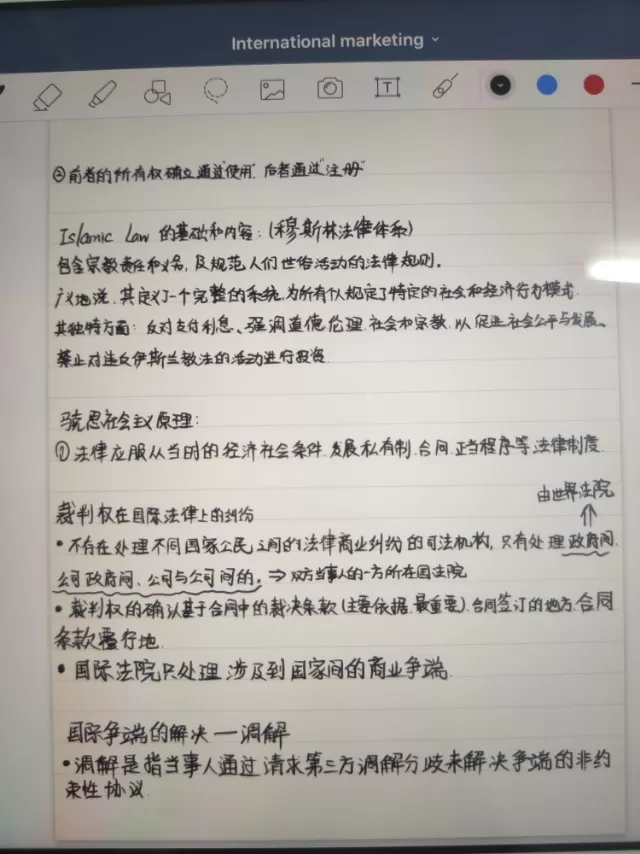 International marketing
T
②前者的所有权确立通过"使用", 后者通过"注册"
Islamic Law 的基础和内容:(穆斯林法律体系)
包含宗教责任和义务,及规范人们世俗活动的法律规则。
广义地说,其定义了一个完整的系统,为所有人规定了特定的社会和经济行为模式.
其独特方面:反对支付利息、强调道德,伦理,社会和宗教,以促进社会公平与发展、
禁止对违反伊斯兰教法的活动进行投资
马克思社会主义原理:
①法律应服从当时的经济社会条件.发展私有制.合同.正当程序等法律制度
由世界法院
裁判权在国际法律上的纠纷
• 不存在处理不同国家公民之间的法律商业纠纷的司法机构,只有处理政府间.
公司政府间、公司与公司间的. ⇒ 双方当事人的一方所在国法院
• 裁判权的确认基于合同中的裁决条款(主要依据.最重要).合同签订的地方.合同
条款履行地.
• 国际法院只处理涉及到国家间的商业争端.
国际争端的解决—调解
• 调解是指当事人通过请求第三方调解分歧来解决争端的非约
束性协议.